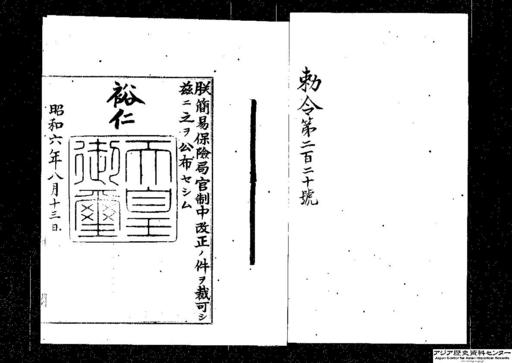 勅令第二百二十號
朕簡易保險局官制中改正ノ件ヲ裁可シ
茲ニ之ヲ公布セシム
裕仁
天皇
御璽
昭和六年八月十三日
アジア歴史資料センター
Japan Center for Asian Historical Records